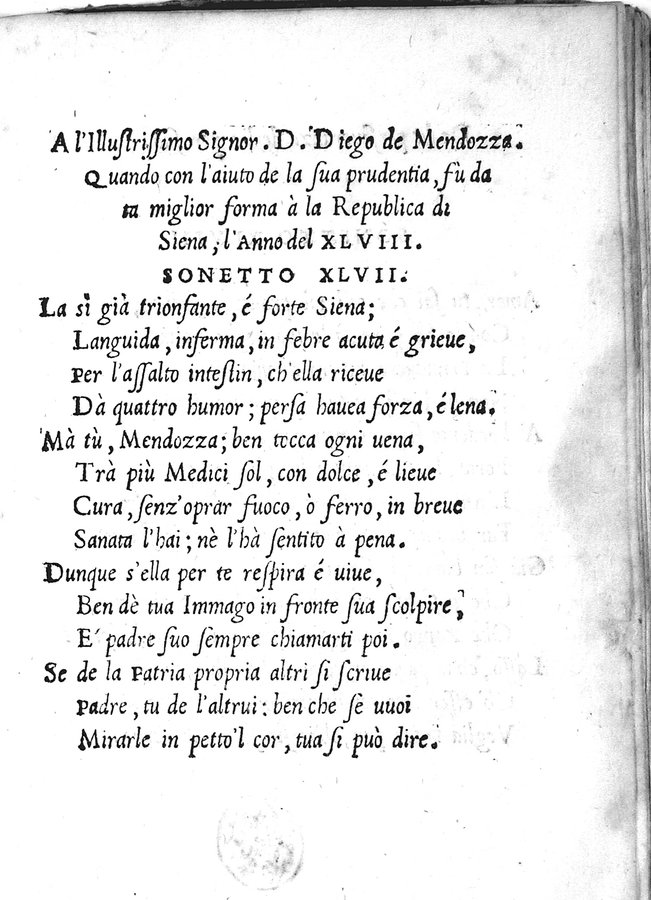 A l'Illuſtriſſimo Signor. D. Diego de Mendozza.
Quando con l'aiuto de la ſua prudentia, fù da
ta miglior forma à la Republica di
Siena, l'Anno del XLVIII.
SONETTO XLVII.
La sì già trionfante, é forte Siena;
Languida, inferma, in febre acuta é grieue,
Per l'aſſalto inteſtin, ch'ella riceue
Dà quattro humor; perſa hauea forza, é lena.
Mà tù, Mendozza; ben tocca ogni uena,
Trà più Medici ſol, con dolce, é lieue
Cura, ſenz'oprar fuoco, ò ferro, in breue
Sanata l'hai; nè l'hà ſentito à pena.
Dunque s'ella per te reſpira é uiue,
Ben dè tua Immago in fronte ſua ſcolpire,
E' padre ſuo ſempre chiamarti poi.
Se de la Patria propria altri ſi ſcriue
Padre, tu de l'altrui: ben che ſè uuoi
Mirarle in petto'l cor, tua ſi può dire.